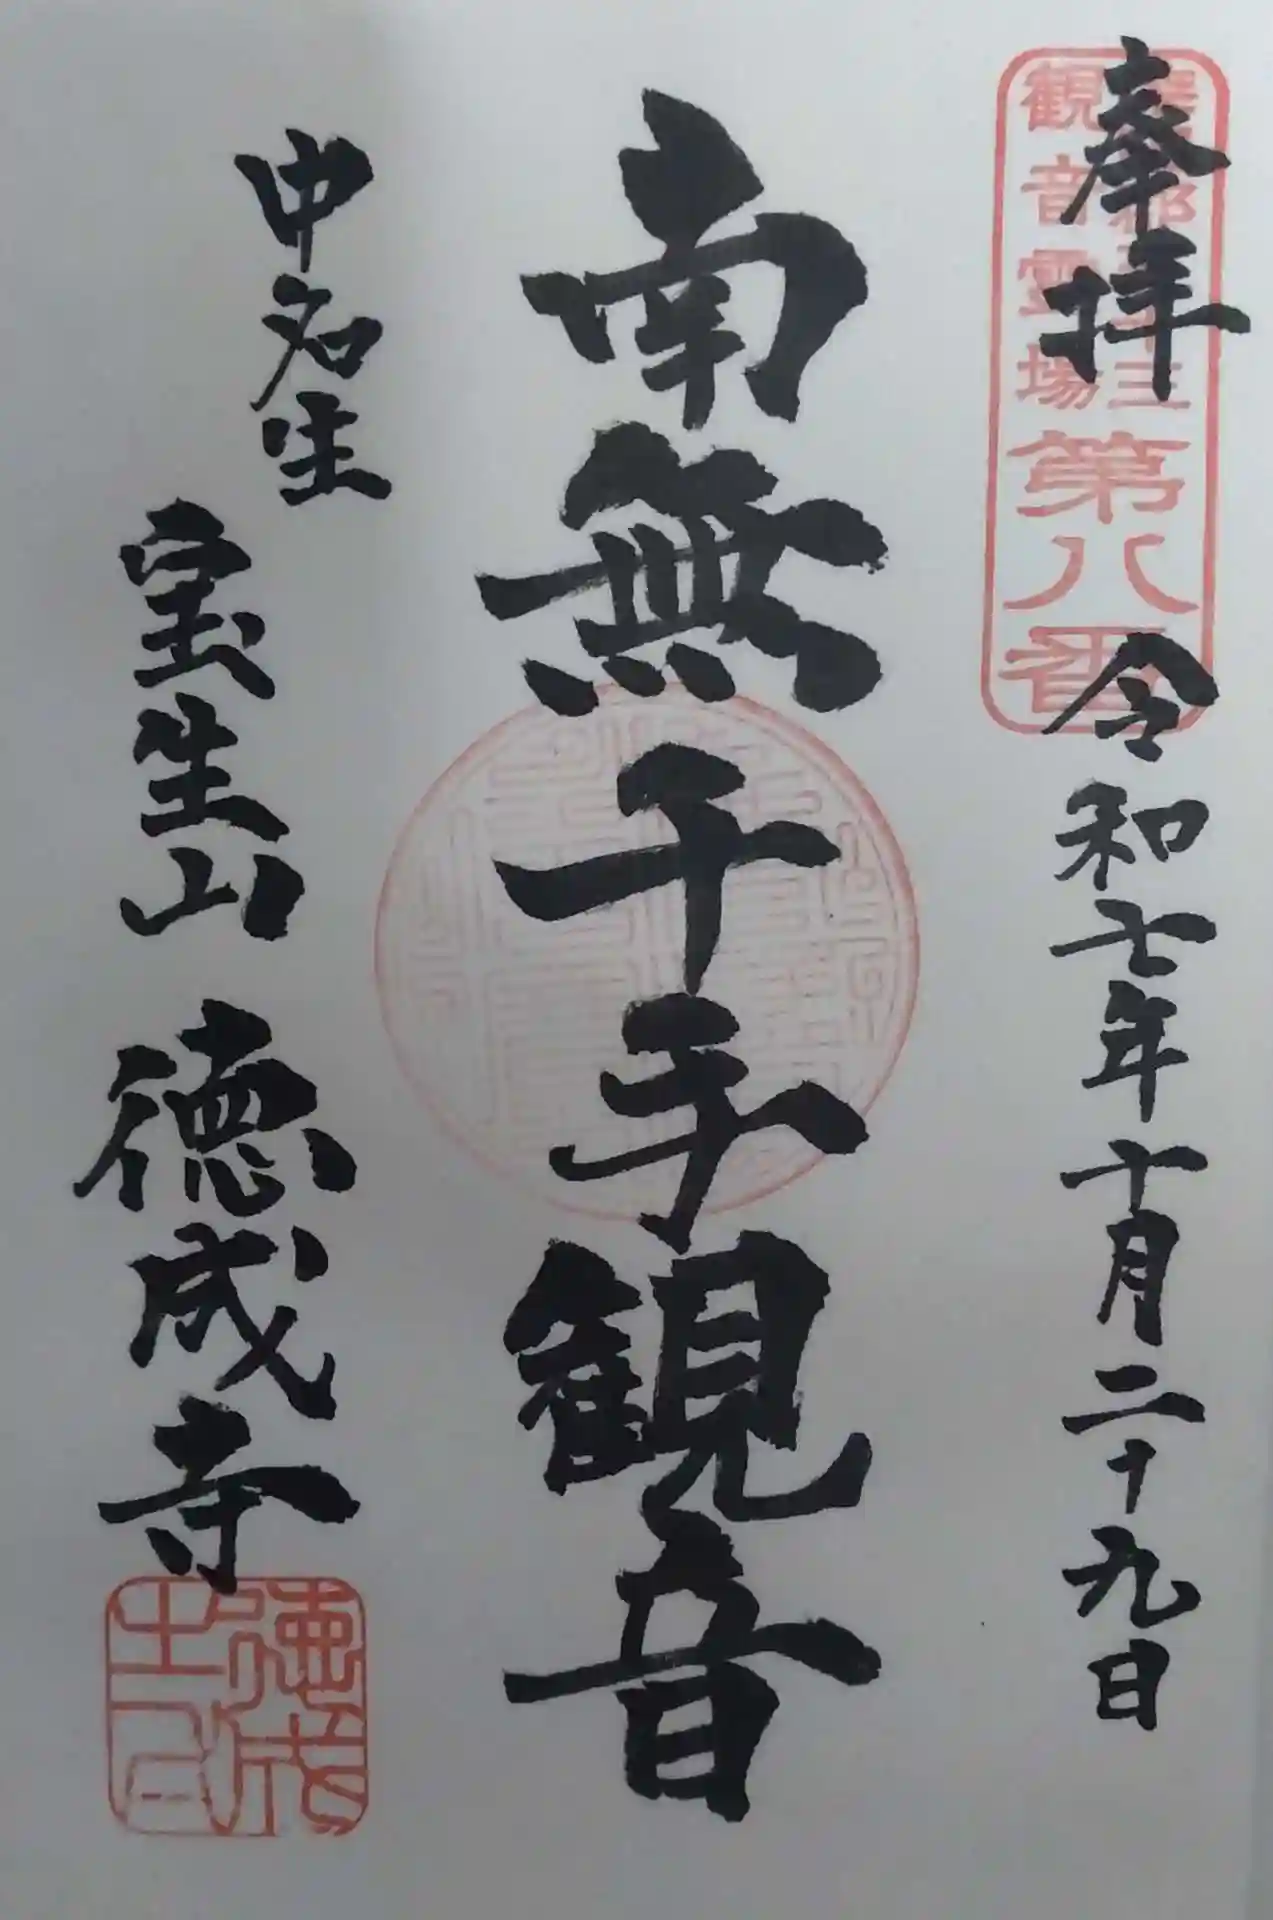 奉拝
令和七年十月二十九日
観音霊場
第八番
南無千手観音
中名生
宝生山 徳成寺